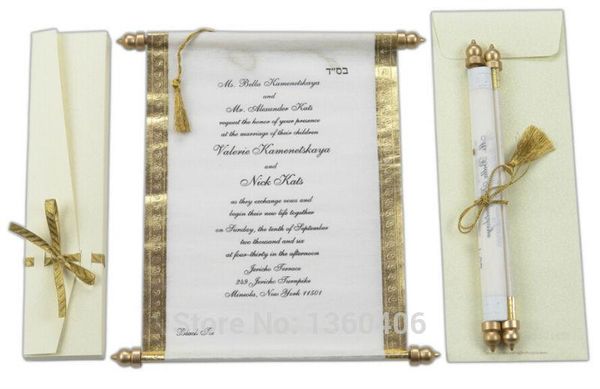 בס"ד
Ms. Bella Kamenetskaya
and
Mr. Alexander Kats
request the honor of your presence
at the marriage of their children
Valerie Kamenetskaya
and
Nick Kats
as they exchange vows and
begin their new life together
on Sunday, the tenth of September
two thousand and six
at four-thirty in the afternoon
Jericho Terrace
259 Jericho Turnpike
Mineola, New York 11501
Black Tie
Store No: 1360406